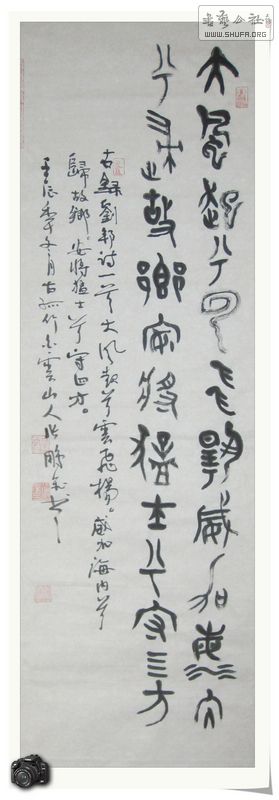 書藝公社
WWW.SHUFA.ORG
大風起兮雲飛揚威加海內
兮歸故鄉安得猛士兮守三方
右錄劉邦詩一首大風起兮雲飛揚。威加海內兮
歸故鄉。安將猛士兮守四方。
壬辰年 月古 竹 雲山人 書